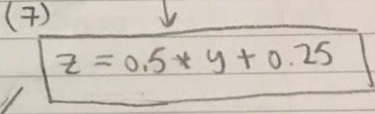 (7)
z = 0.5 * y + 0.25